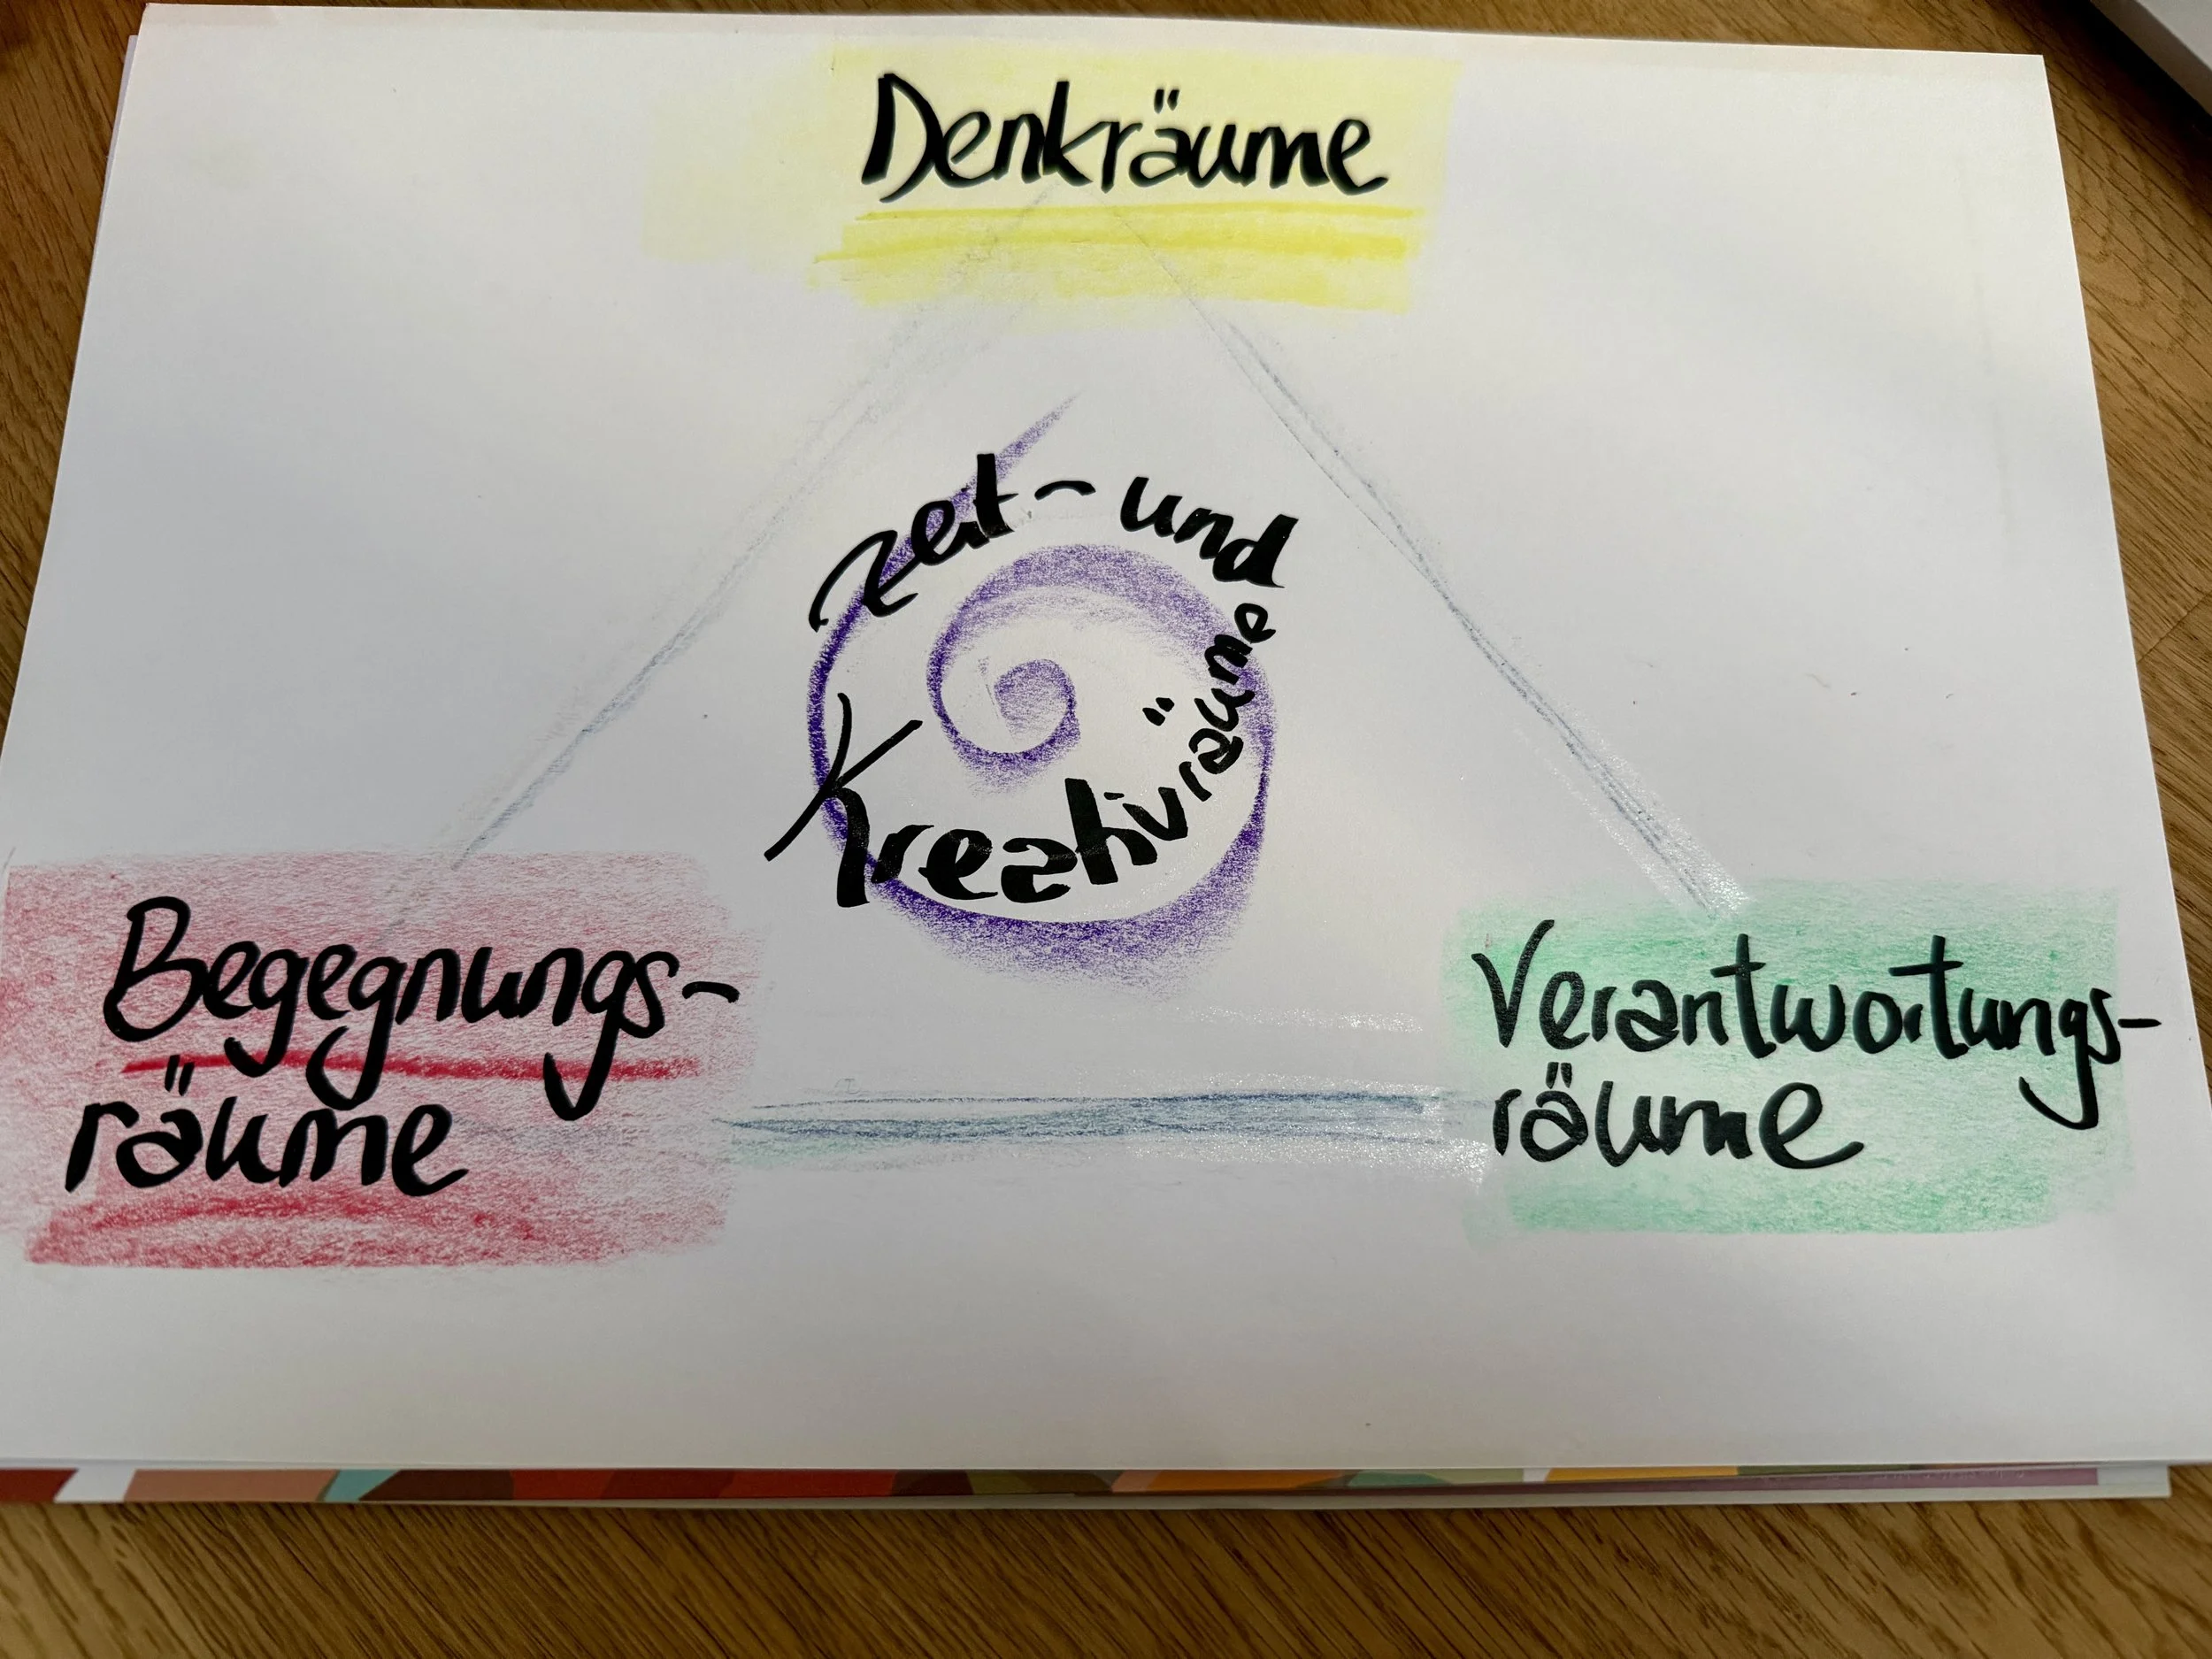 Denkräume
Zeit- und
Kreativräume
Begegnungs-
räume
Verantwortungs-
räume